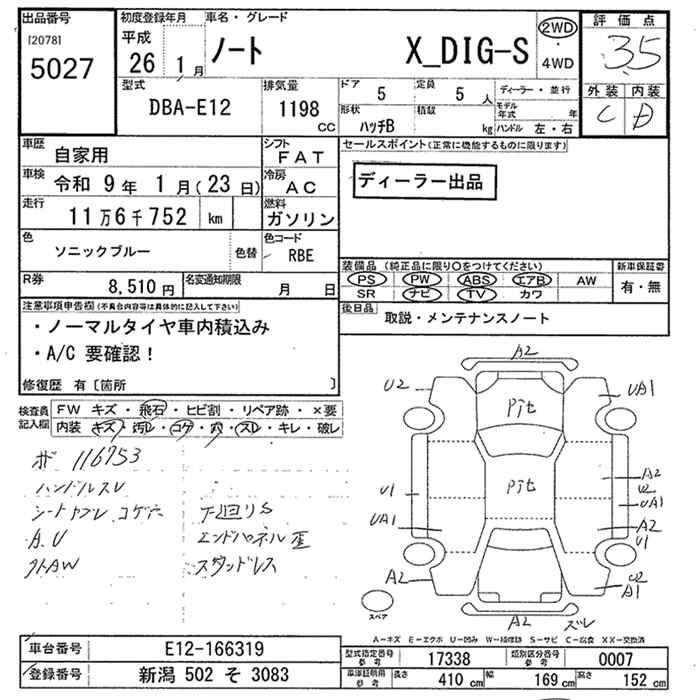 出品番号
[2078]
5027
初度登録年月
平成
26 1月
車名・グレード
ノート X_DIG-S
2WD
・
4WD
評価点
3.5
外装 内装
C D
型式
DBA-E12
排気量
1198
CC
ドア
5
定員
5 人
形状
ハッチB
積載
kg
ディーラー・並行
モデル年式 年
ハンドル 左・右
車歴
自家用
シフト
FAT
車検
令和 9年 1月(23日)
冷房
AC
走行
11万6千752 km
燃料
ガソリン
色
ソニックブルー
色替
色コード
RBE
R券
8,510円
名変通知期限
月 日
セールスポイント(正常に機能するものに限ります)
ディーラー出品
装備品 (純正品に限り○をつけてください)
PS PW ABS エアB AW
SR ナビ TV カワ
新車保証書
有・無
後日品
取説・メンテナンスノート
注意事項申告欄(不具合内容等は具体的に記入して下さい)
・ノーマルタイヤ車内積込み
・A/C 要確認!
修復歴 有〔箇所 〕
検査員
記入欄
FW キズ・飛石・ヒビ割・リペア跡・×要
内装 キズ・汚レ・コゲ・穴・スレ・キレ・破レ
116753
ハンドルスレ
シートヤブレ コゲ穴
下廻りS
A.U
エンドパネル歪
外AW
スタッドレス
A2
U2
UA1
Pjt
Pjt
U1
A2
U2
UA1
UA1
A2
U1
A2
U2
A1
A2
ズレ
スペア
A-キズ E-エクボ U-凹み W-補修跡 S-サビ C-腐食 XX-交換済
車台番号
E12-166319
登録番号
新潟 502 そ 3083
型式指定番号
参考
17338
類別区分番号
参考
0007
車庫証明用
参考
長さ
410 cm
幅
169 cm
高さ
152 cm